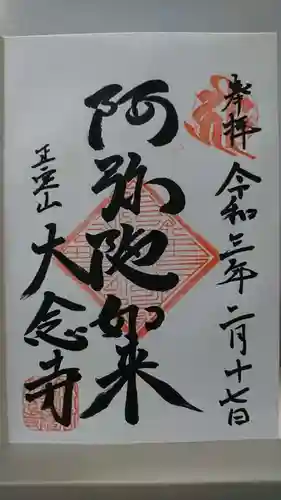 奉拝
令和三年二月十七日
阿弥陀如来
大念寺